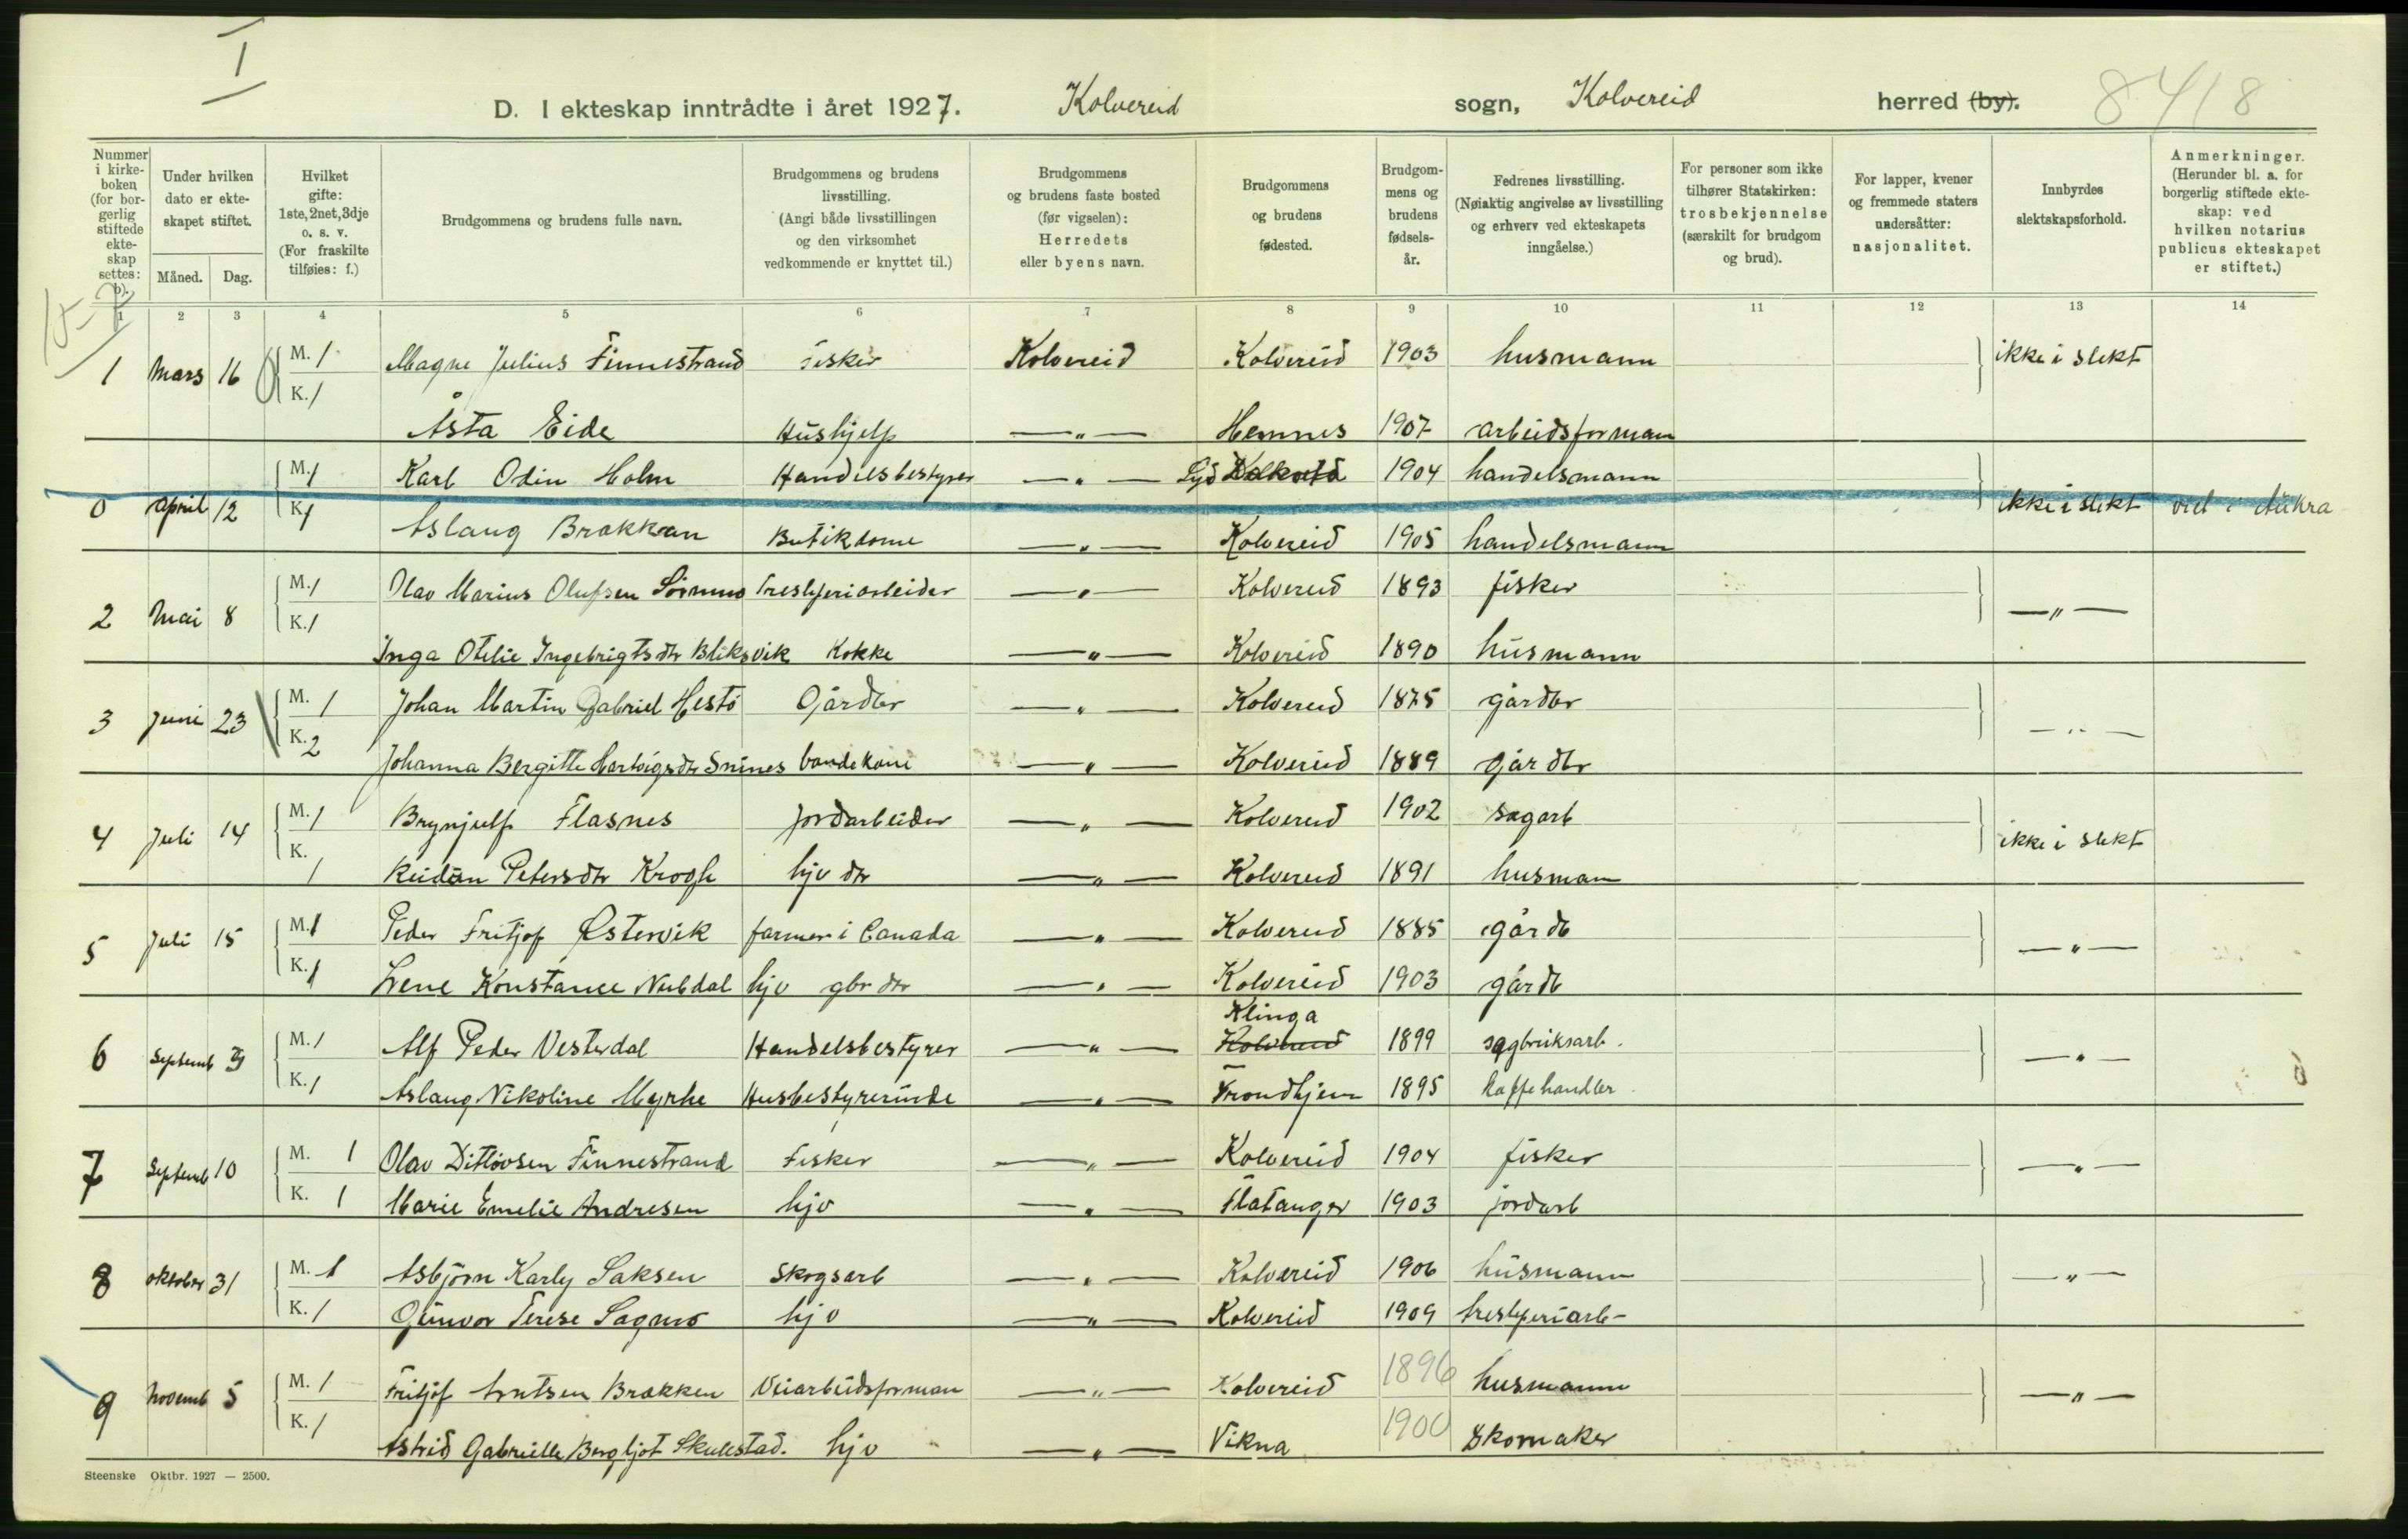 I
D. I ekteskap inntrådte i året 1927. Kolvereid sogn, Kolvereid herred (by). 8418
Nummer i kirkeboken (for borgerlig stiftede ekteskap settes: b).
Under hvilken dato er ekteskapet stiftet.
Måned. Dag.
Hvilket gifte: 1ste, 2net, 3dje o. s. v. (For fraskilte tilføies: f.)
Brudgommens og brudens fulle navn.
Brudgommens og brudens livsstilling. (Angi både livsstillingen og den virksomhet vedkommende er knyttet til.)
Brudgommens og brudens faste bosted (før vigselen): Herredets eller byens navn.
Brudgommens og brudens fødested.
Brudgommens og brudens fødselsår.
Fedrenes livsstilling. (Nøiaktig angivelse av livsstilling og erhverv ved ekteskapets inngåelse.)
For personer som ikke tilhører Statskirken: trosbekjennelse (særskilt for brudgom og brud).
For lapper, kvener og fremmede staters undersåtter: nasjonalitet.
Innbyrdes slektskapsforhold.
Anmerkninger. (Herunder bl. a. for borgerlig stiftede ekteskap: ved hvilken notarius publicus ekteskapet er stiftet.)
1 2 3 4 5 6 7 8 9 10 11 12 13 14
1 Mars 16 M. 1 Magne Julius Finnestrand Fisker Kolvereid Kolvereid 1903 husmann ikke i slekt
K. 1 Åsta Eide Hushjelp —"— Hemnes 1907 arbeidsforman
0 April 12 M. 1 Karl Odin Holm Handelsbestyrer —"— 1904 handelsmann ikke i slekt viet i Aukra
K. 1 Aslaug Brækkan Butikdame —"— Kolvereid 1905 handelsmann
2 Mai 8 M. 1 Olav Marius Olufsen Sørmo Tresliperiarbeider —"— Kolvereid 1893 fisker —"—
K. 1 Inga Otelie Ingebrigtsdtr Bliksvik Kokke —"— Kolvereid 1890 husmann
3 Juni 23 M. 1 Johan Martin Gabriel Hestø Gårdbr —"— Kolvereid 1875 gårdbr —"—
K. 2 Johanna Bergitte Hartvigsdtr Snines bondekone —"— Kolvereid 1889 gårdbr
4 Juli 14 M. 1 Brynjulf Flasnes Jordarbeider —"— Kolvereid 1902 sagarb ikke i slekt
K. 1 Reidun Petersdtr Krogh hjv dtr —"— Kolvereid 1891 husman
5 Juli 15 M. 1 Peder Fritjof Østervik farmer i Canada —"— Kolvereid 1885 gårdb —"—
K. 1 Lene Konstance Nubdal hjv gbr dtr —"— Kolvereid 1903 gårdb
Klinga
6 Septemb 3 M. 1 Alf Peder Vesterdal Handelsbestyrer —"— Kolvereid 1899 sagbruksarb. —"—
K. 1 Aslaug Nikoline Myrhe Husbestyrerinde —"— Trondhjem 1895 kaffehandler
7 Septemb 10 M. 1 Olav Ditløvsen Finnestrand Fisker —"— Kolvereid 1904 fisker —"—
K. 1 Marie Emelie Andresen hjv —"— Flatanger 1903 jordarb
8 Oktober 31 M. 1 Asbjørn Karly Saksen Skogsarb —"— Kolvereid 1906 husmann —"—
K. 1 Gunvor Terese Sagmo hjv —"— Kolvereid 1909 tresliperiarb-
9 Novemb 5 M. 1 Fritjof Arntsen Brækken Veiarbeidsforman —"— Kolvereid 1896 husmann —"—
K. 1 Astrid Gabrielle Bergljot Skulestad. hjv —"— Vikna 1900 Skomaker
Steenske Oktbr. 1927 — 2500.